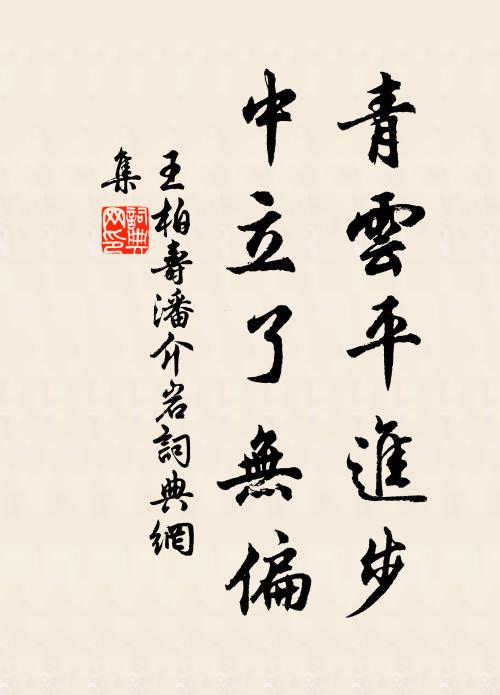 青雲平進步
中立了無偏
王柏壽潘介岩詞典網
集
詞典
网印